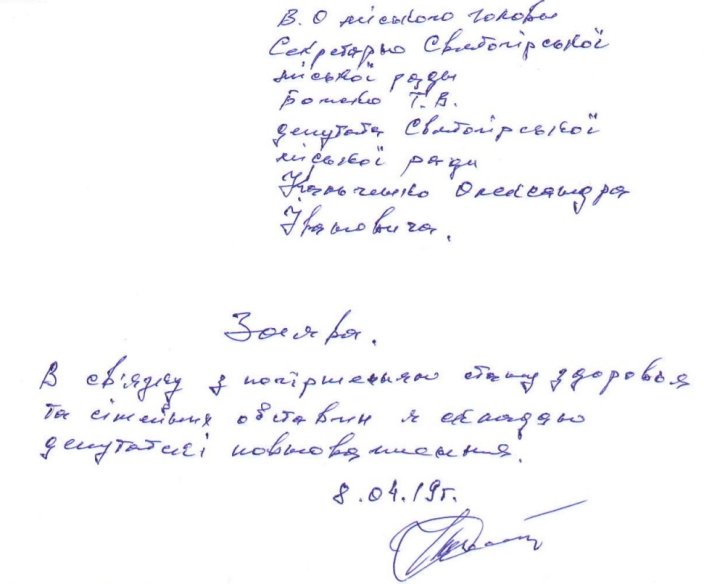 В. О міського голови
Секретарю Святогірської
міської ради
Т. В.
депутата Святогірської
міської ради
Олександра
Івановича.
Заява.
В св'язку з погіршенням стану здоровья
та сімейних обставин я складаю
депутатскі повноваження.
8.04.19г.